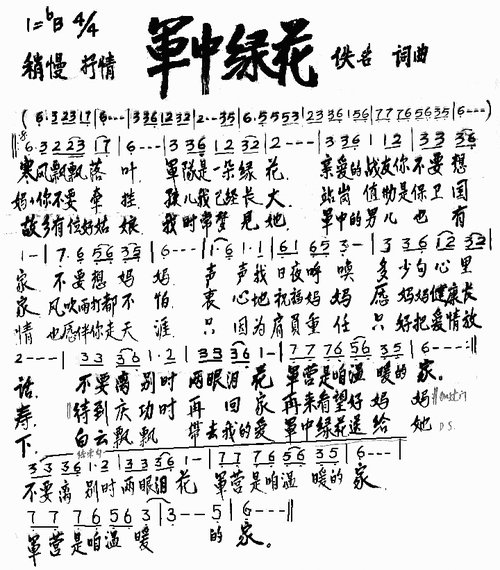 1=♭B 4/4
軍中绿花
稍慢 抒情
佚名 词曲
(6·32231716---|33612322--35|6·5553|2233615617776563516---)
6·3223176---|336122322---|33611233336
寒风飘飘落叶 軍隊是一朵绿花 亲爱的战友你不要想
妈妈你不要牵挂 孩儿我已经长大 站岗值勤是保卫国
故乡有位好姑娘 我时常梦见她 軍中的男儿也有
1-|7·656356---|1·61·1|61653-|3361232
家 不要想妈妈 声声我日夜呼唤 多少句心里
家 风吹雨打都不怕 衷心地祝福妈妈 愿妈妈健康长
情 也愿伴你走天涯 只因为肩負重任 只好把爱情放
2---|333612|333361-|7776566356---:||
话。 不要离别时两眼泪花 軍营是咱温暖的家。
寿。 待到庆功时再回家 再来看望好妈妈
下。 白云飘飘带去我的爱 軍中绿花送给她 D.S.
结束句
3336123336 1-|7776566356---|
不要离别时两眼泪花 軍营是咱温暖的家
7776563|3--5|6---||
軍营是咱温暖的家。